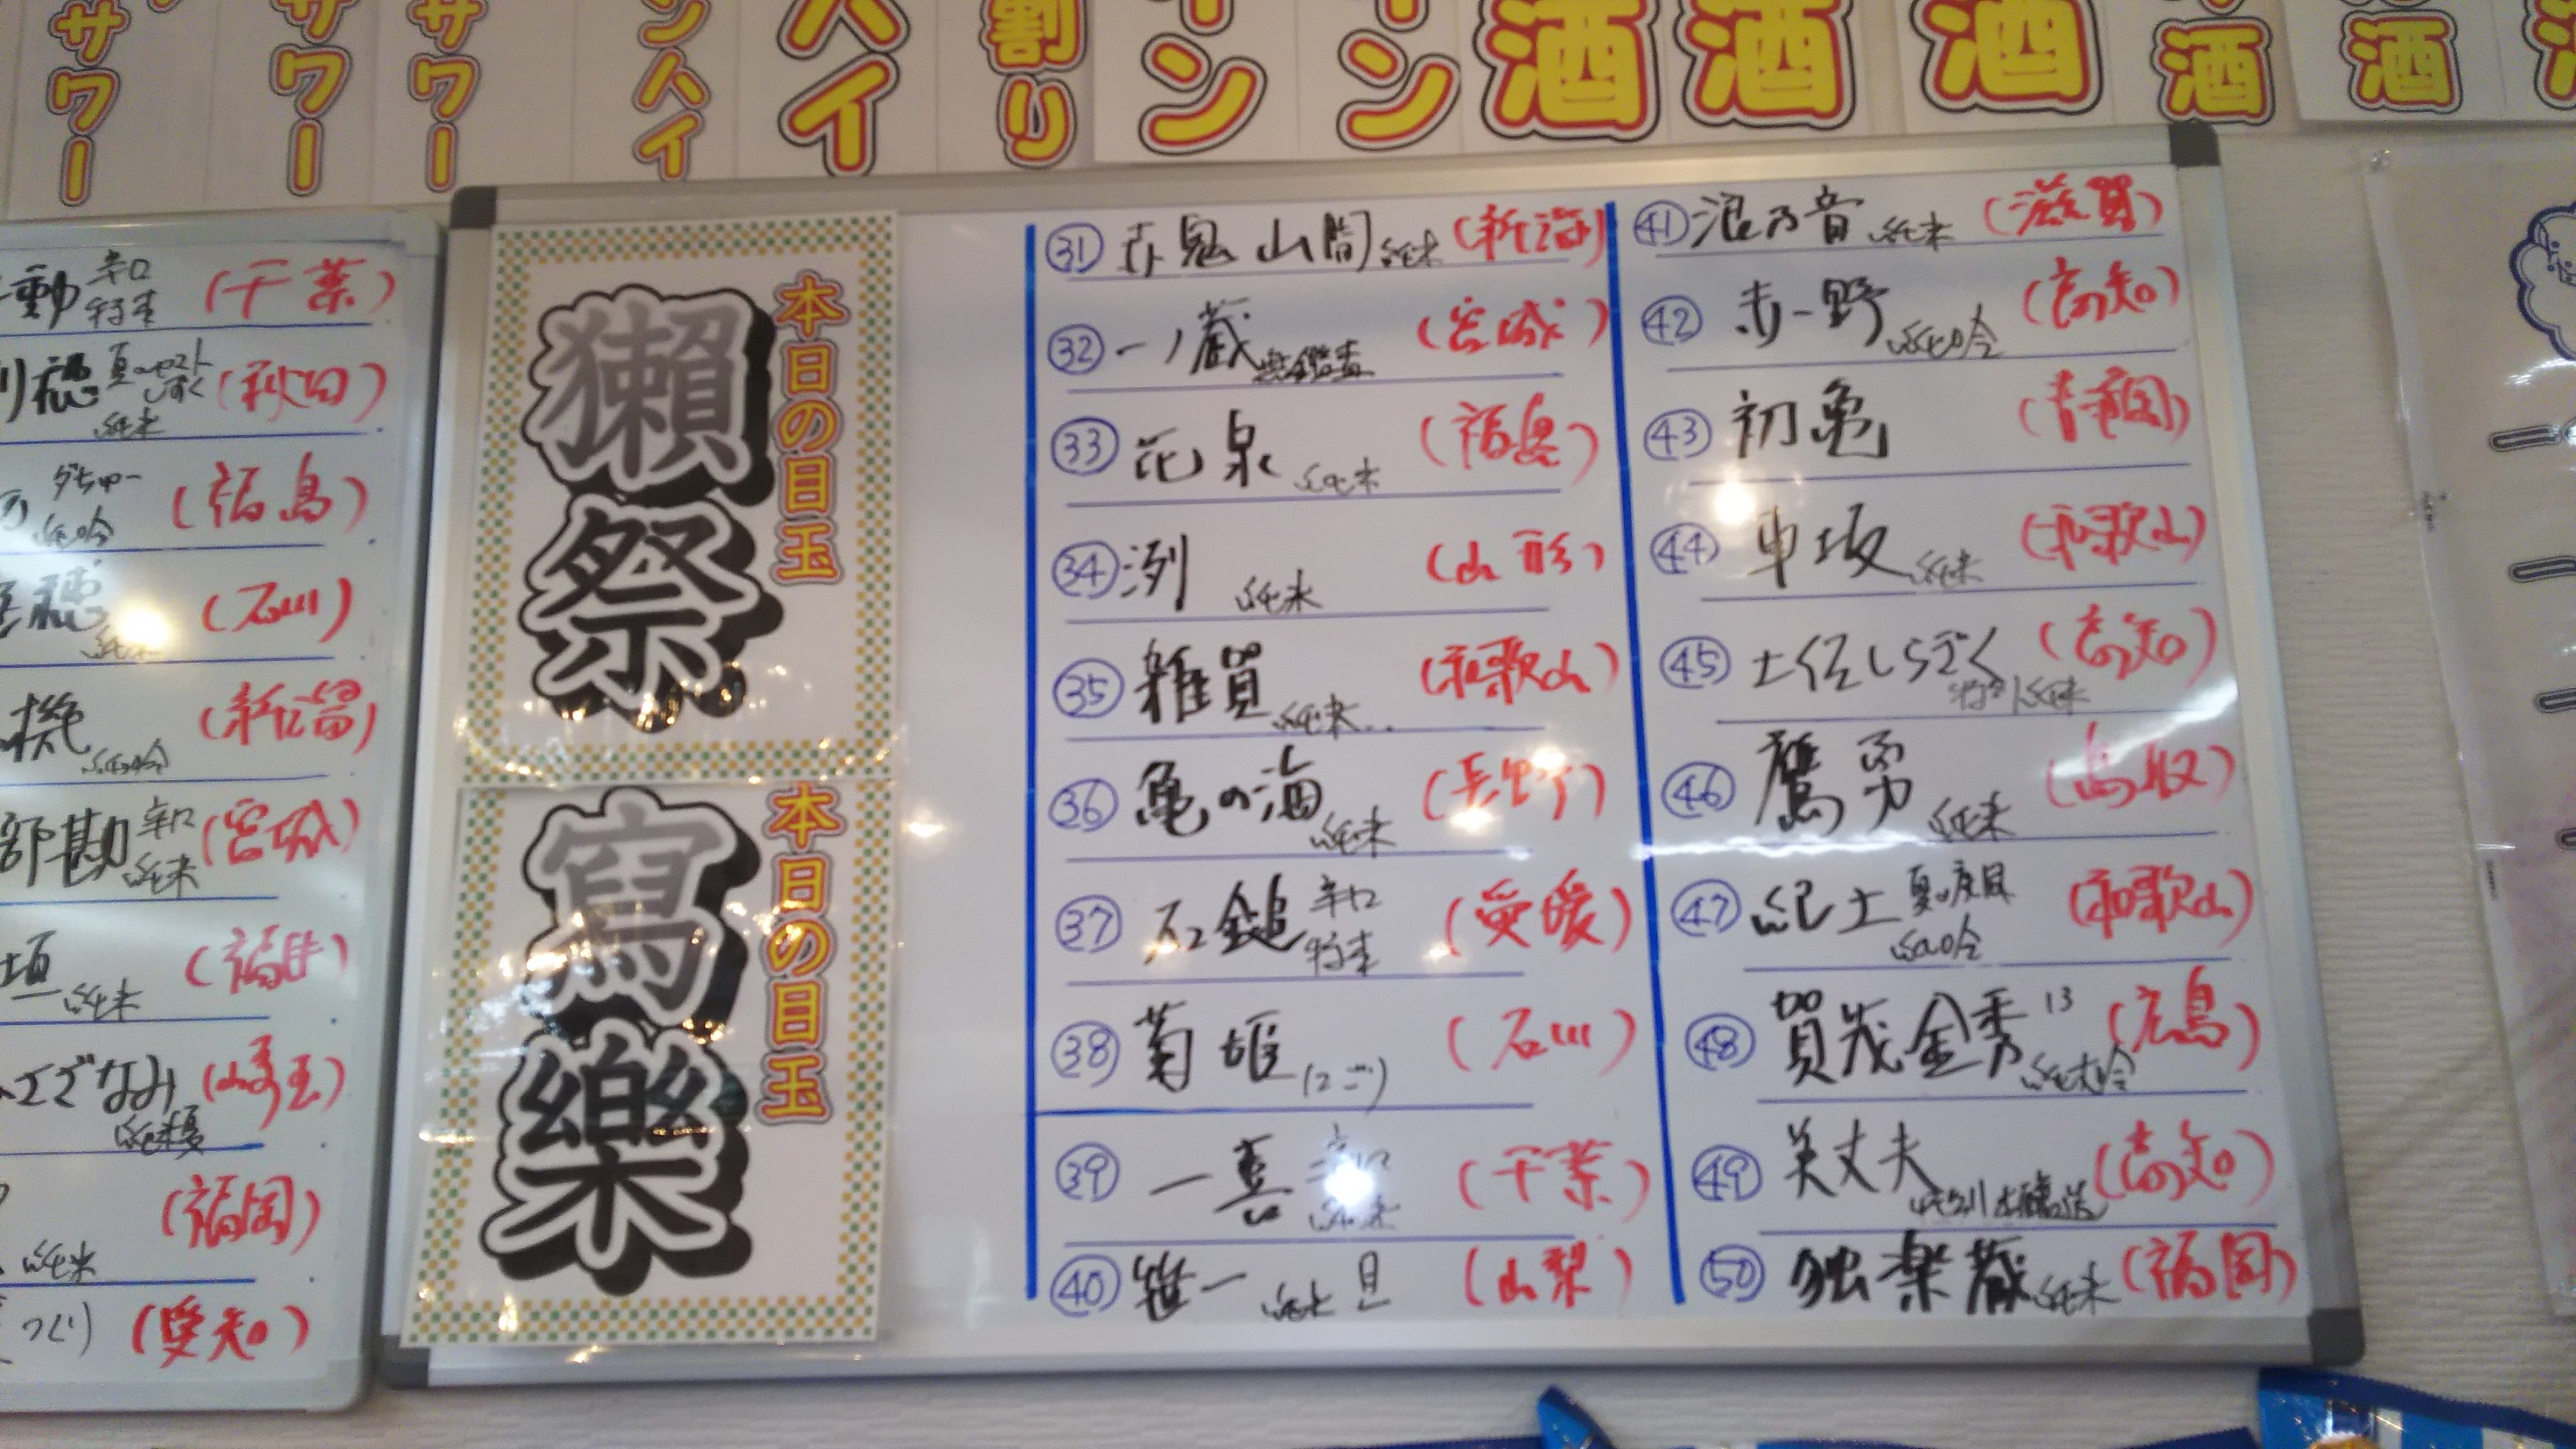 サワー
サワー
サワー
ンハイ
ハイ
割り
イン
イン
酒
酒
酒
酒
酒
動 辛口 (千葉)
穂 純米 (秋田)
純吟 (福島)
穂 純米 (石川)
機 純吟 (新潟)
部勘 辛口 純米 (宮城)
垣 純米 (福井)
(埼玉)
(福岡)
純米
つくり) (愛知)
本日の目玉
獺祭
本日の目玉
寫樂
㉛ 山間 純米 (新潟)
㉜ 一ノ蔵 無鑑査 (宮城)
㉝ 花泉 純米 (福島)
㉞ 洌 純米 (山形)
㉟ 雑賀 純米 (和歌山)
㊱ 亀の海 純米 (長野)
㊲ 石鎚 辛口 特本 (愛媛)
㊳ 菊姫 (にごり) (石川)
㊴ 一喜 辛口 純米 (千葉)
㊵ 笹一 純米 (山梨)
㊶ 浪乃音 純米 (滋賀)
㊷ 赤野 純吟 (高知)
㊸ 初亀 (静岡)
㊹ 車坂 純米 (和歌山)
㊺ 土佐しらぎく 純米 (高知)
㊻ 鷹勇 純米 (鳥取)
㊼ 紀土 夏の疾風 純吟 (和歌山)
㊽ 賀茂金秀 13 純大吟 (広島)
㊾ 美丈夫 (高知)
㊿ 独楽蔵 純米 (福岡)